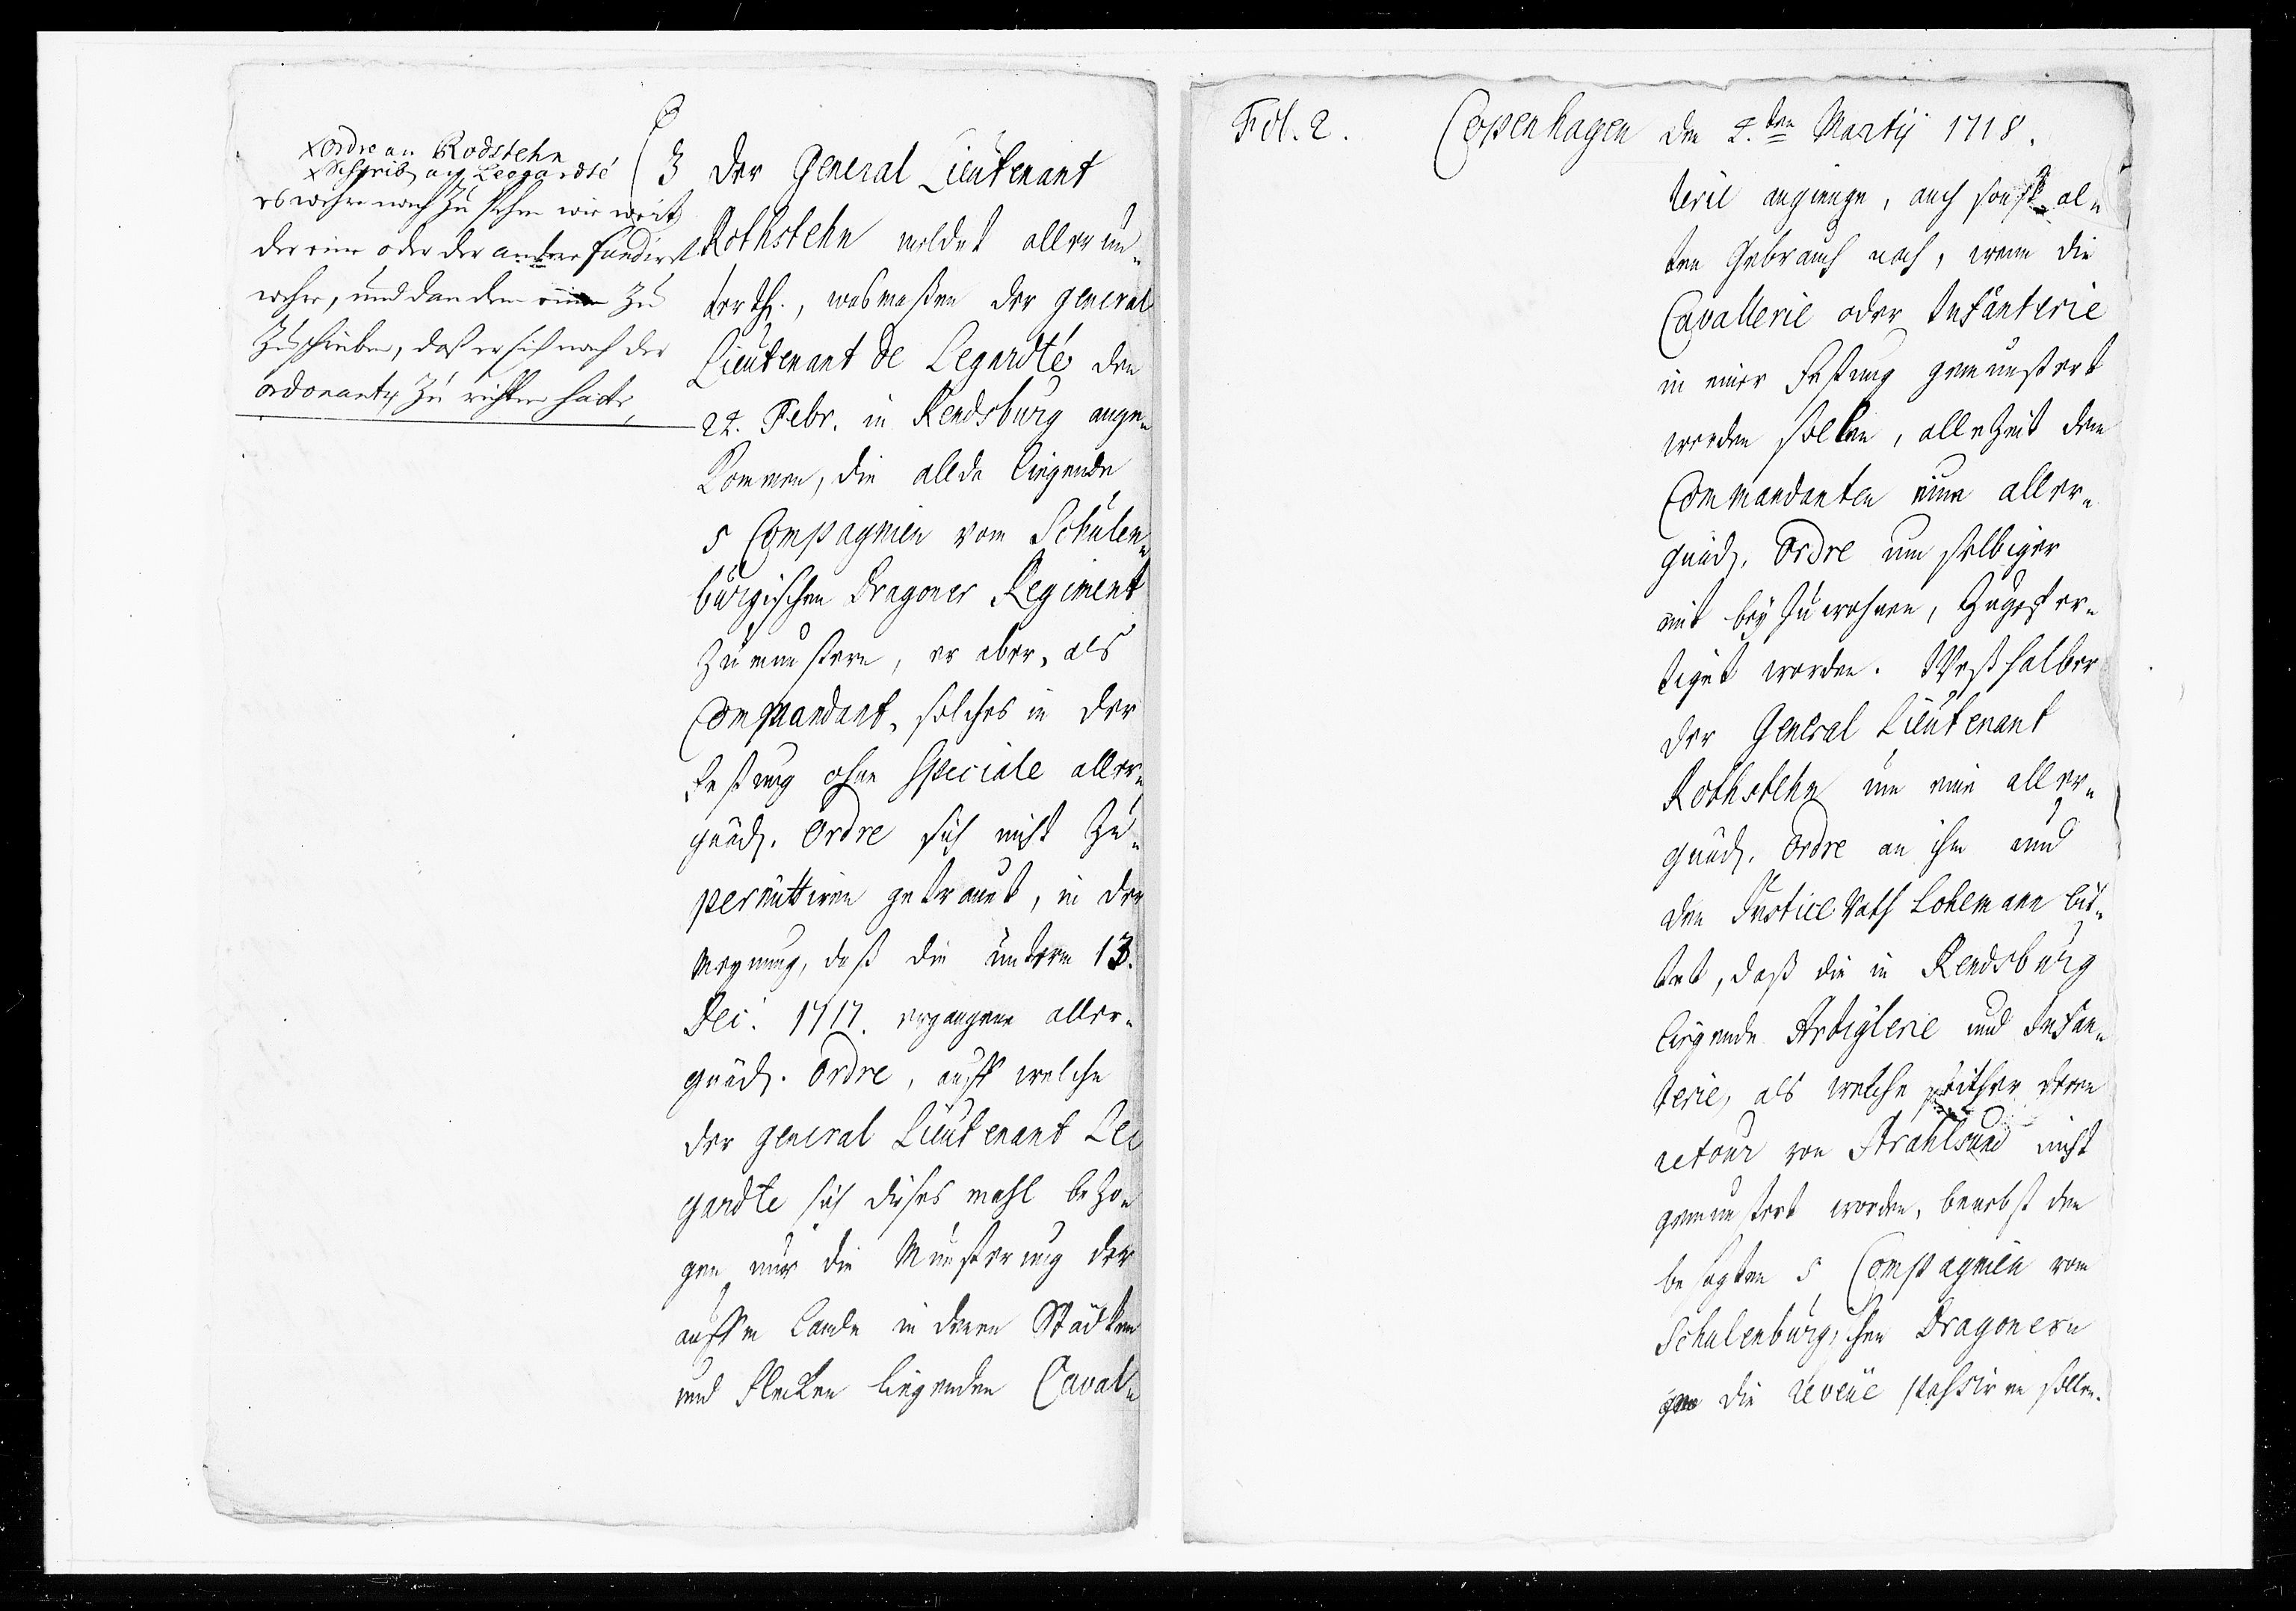 x ordre an Rodstehn
x Schreib an Leogardté
es wehre nach zu sehen wie weit
der eine oder der andere fundiert
wehre, und dan dem einen zu
zuschreiben, daß er sich nach der
ordonantz zu richten hätte,
3 Der General Lieutenant
Rothstehn meldet allerun„
terth., wasmaßen der General
Lieutenant de Legardté den
22. Febr. in Rendsburg ange„
kommen, die allda liegende
5 Compagnien vom Schulen„
burgischen Dragoner Regiment
zu munstern, er aber, als
Commandant, solches in der
Festung ohne Speciale aller„
gnäd. Ordre sich nicht zu„
permittiren getrauet, in der
Meynung, daß die unterm 13.
Dec. 1717. ergangene aller„
gnäd. Ordre, auff welche
der General Lieutenant Le„
gardte sich dieses mahl bezo„
gen nur die Munsterung der
auffm Lande in denen Städten
und Flecken liegenden Caval„
Fol. 2. Copenhagen den 2.ten Martij 1718.
lerie angienge, auch sonst al„
ten Gebrauch nach, wenn die
Cavallerie oder Infanterie
in einer Festung gemunstert
werden sollen, allezeit dem
Commandanten eine aller„
gnäd. Ordre um selbiger
mit beyzuwohnen, zugefer„
tiget worden. Weßhalber
der General Lieutenant
Rothstehn um eine aller„
gnäd. Ordre an ihm und
den Justice Rath Lohemann bit„
tet, daß die in Rendsburg
liegende Artiglerie und Infan„
terie, als welche seither deren
retour von Strahlsund nicht
gemunstert worden, benebst den
besagten 5 Compagnien vom
Schulenburgischen Dragonern
die reveüe passiren sollen.